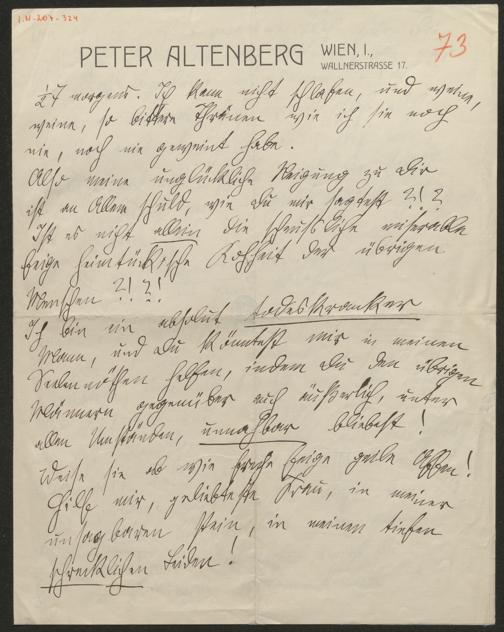 I.N-204.324
73
PETER ALTENBERG WIEN, I.,
WALLNERSTRASSE 17.
½7 morgens. Ich kann nicht schlafen, und weine,
weine, so bittere Thränen wie ich sie noch
nie, noch nie geweint habe.
Also meine unglückliche Neigung zu Dir
ist an Allem schuld, wie Du mir sagtest ?!?
Ist es nicht allein die scheussliche miserable
feige heimtückische Rohheit der übrigen
Menschen ?!?!
Ich bin ein absolut todeskranker
Mann, und Du könntest mir in meinen
Seelennöthen helfen, indem Du den übrigen
Männern gegenüber auch äußerlich, unter
allen Umständen, unnahbar bliebest!
Weise sie ab wie freche feige geile Affen!
Hilf mir, geliebteste Frau, in meiner
unsagbaren Pein, in meinen tiefen
schrecklichen Leiden!